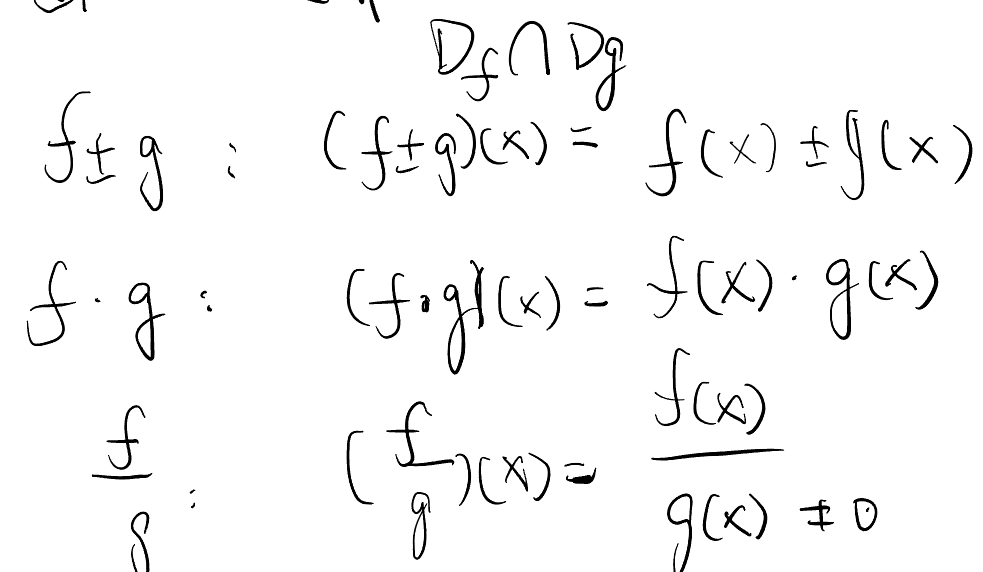 D_f ∩ D_g
f ± g : (f ± g)(x) = f(x) ± g(x)
f · g : (f · g)(x) = f(x) · g(x)
f/g : (f/g)(x) = f(x)/g(x) ≠ 0